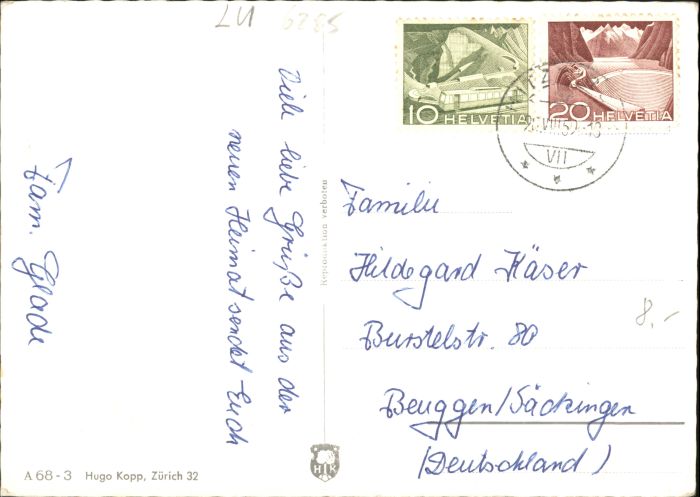 LU
5829
Viele liebe Grüße aus der
neuen Heimat sendet Euch
Fam. Glade
Reproduktion verboten
10 HELVETIA
20 HELVETIA
VII
Familie
Hildegard Käser
Burstelstr. 80
Beuggen/Säckingen
(Deutschland)
8.-
HK
A 68 - 3 Hugo Kopp, Zürich 32